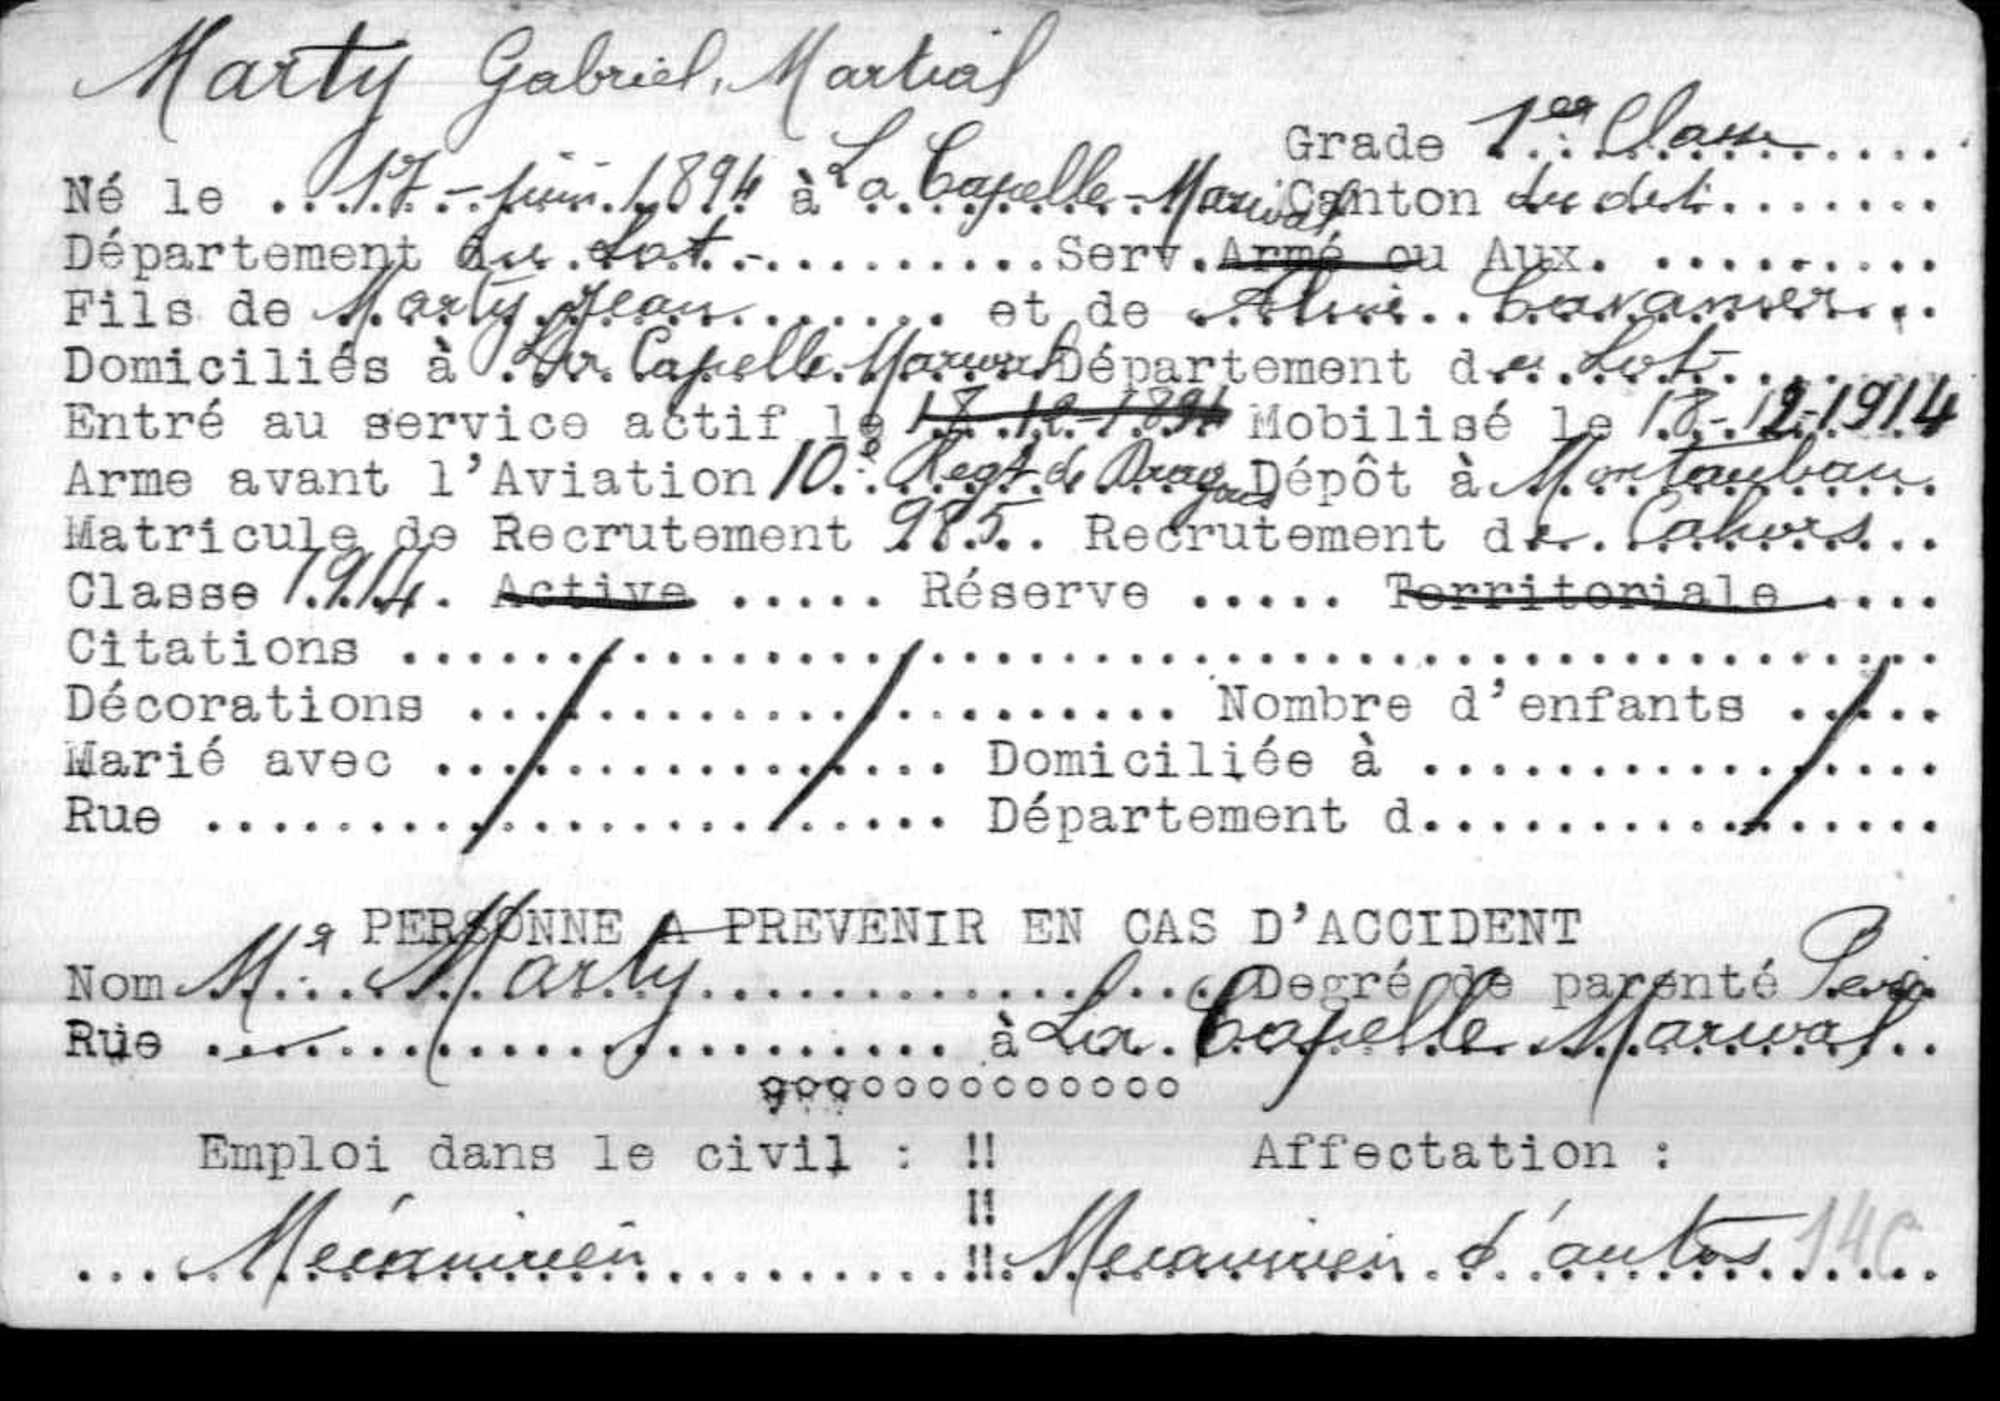 Marty Gabriel, Martial
Grade 1er Classe
Né le 17 - juin 1894 à La Capelle-Marival Canton du dit
Département du Lot - Serv. Armé ou Aux.
Fils de Marty Jean et de
Domiciliés à La Capelle Marival Département de Lot
Entré au service actif le 18-12-1894 Mobilisé le 18-12-1914
Arme avant l'Aviation 10e Regt de Dragons Dépôt à Montauban
Matricule de Recrutement 985 Recrutement de Cahors
Classe 1914 Active Réserve Territoriale
Citations
Décorations Nombre d'enfants
Marié avec Domiciliée à
Rue Département d
PERSONNE A PREVENIR EN CAS D'ACCIDENT
Nom Mr Marty Degré de parenté
Rue — à La Capelle Marival
Emploi dans le civil : !! Affectation :
!!
Mécanicien !! Mecanicien d'autos 140